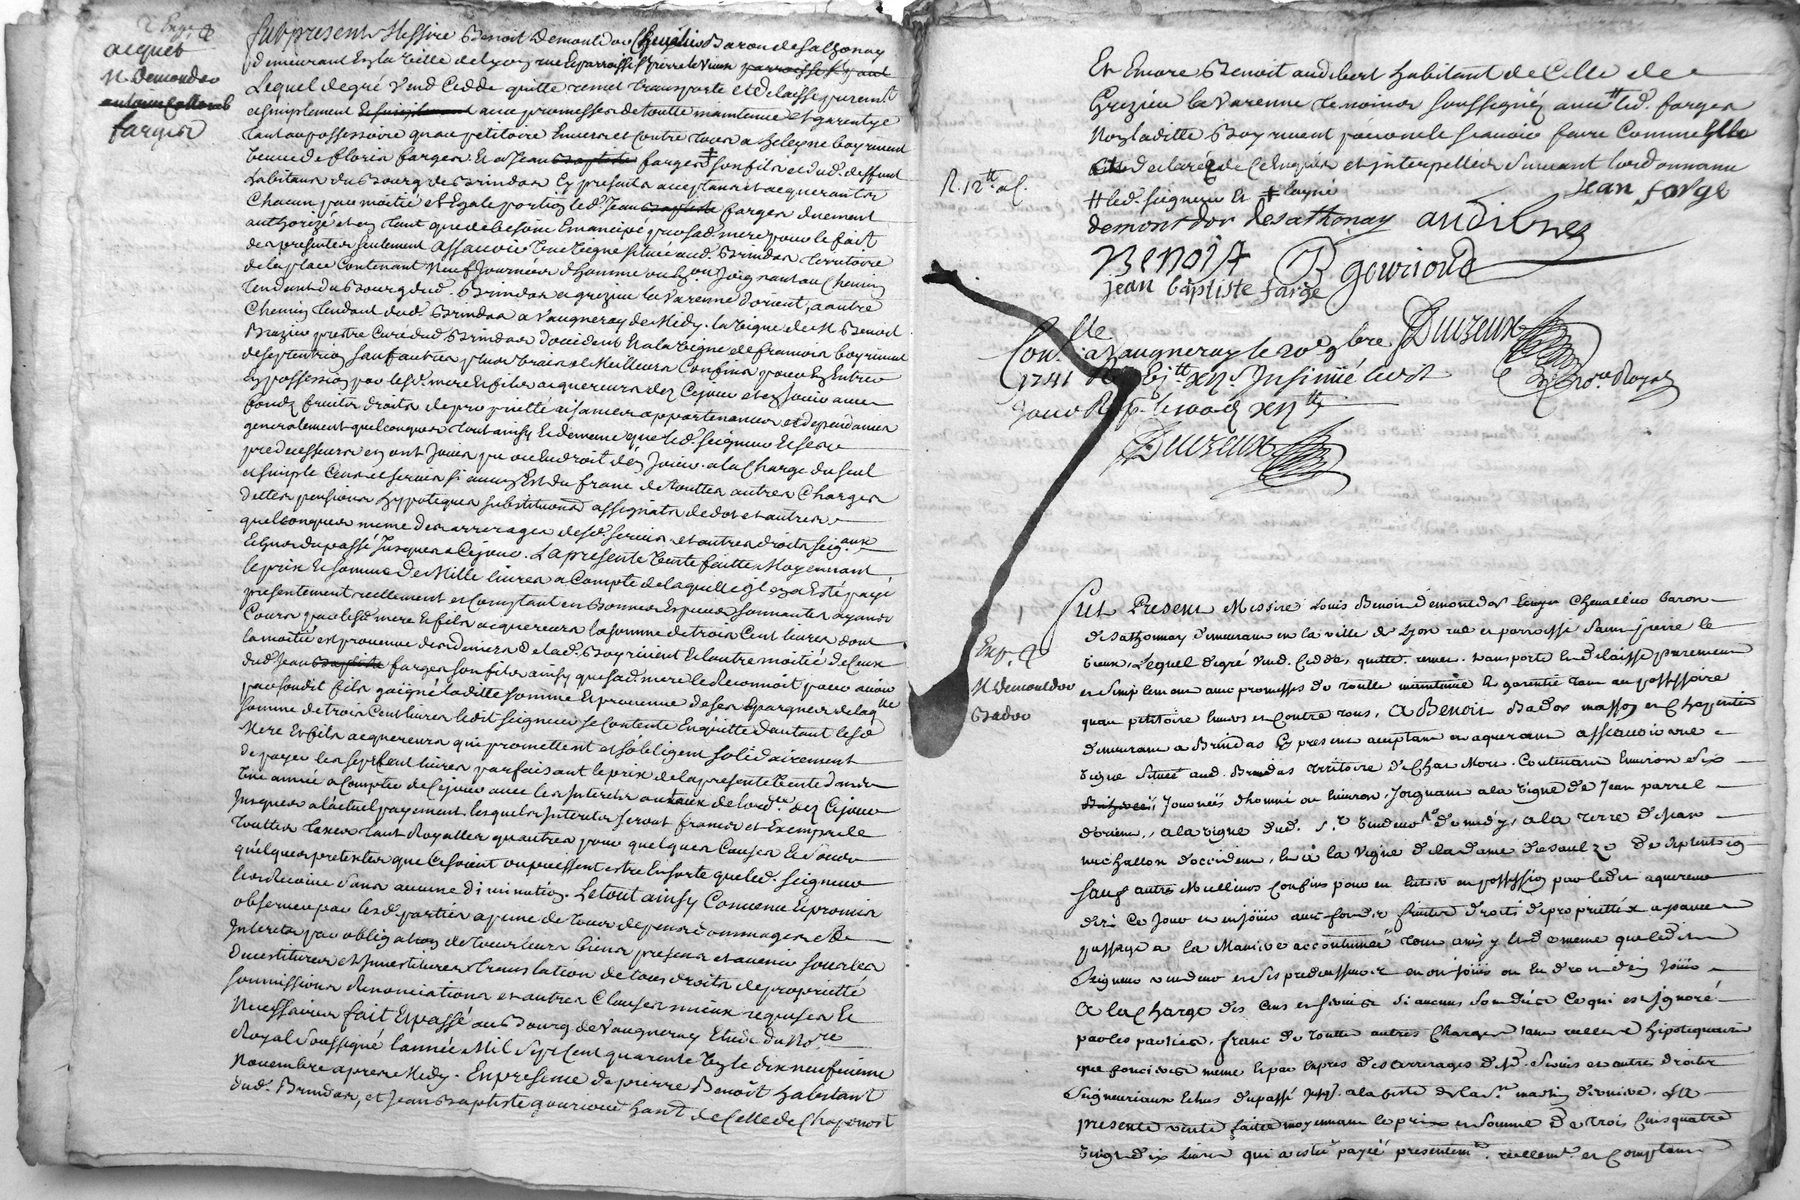 acquets
M Demondor
farges
fut present Messire Benoit Demontdor Chevalier Baron de Sathonay
demeurant En la Ville de Lyon rue Et parroisse St pierre le Vieux
Lequel de gré Vend Cedde quitte remet transporte et delaisse purement
et simplement avec promesses de toutte maintenue et garentye
tant au possessoire qu'au petitoire Envers et Contre tous a heleyne boyrivent
Veuve de floris farges Et a Jean farges son fils et dud. deffunt
habitans du Bourg de Brindas Ey presents acceptants et acquerants
Chacun pour moitié et Egale portion led. Jean farges duement
authorizé et en tant que de besoin Emancipé par sad. mere pour le fait
des presentes seulement assavoir Une Vigne située aud. Brindas territoire
de la place Contenant Neuf Journées d'homme ou Environ Joignant au Chemin
tendant du Bourg dud. Brindas a grezieu la Varenne d'orient, a autre
Chemin tendant dud Brindas a Vaugneray de Midy, la Vigne de M. Benoit
Brazier prettre Curé dud Brindas d'occident Et a la Vigne de francois boyrivent
de septentrion sauf autres plus vrais et Meilleurs Confins pour En Entrer
En possession par lesd. mere et fils acquereurs dez Cejour et en Jouir avec
fonds fruits droits de proprietté aisances appartenances et dependances
generalement quelconques tout ainsy Et de meme que led. seigneur Et ses
predecesseurs en ont Jouis pu ou Eu droit d'en Jouir. a la Charge du seul
et simple Cens et servis si aucun Est du franc de touttes autres Charges
dettes pensions hypoteques substitutions assignats de dot et autres
quelconques meme des arrerages desd. servis et autres droits seig.aux
Echus du passé Jusques a Cejour. La presente Vente faitte Moyennant
le prix Et somme de Mille livres a Compte de laquelle il en a Esté payé
presentement reellement et Comptant en Bonnes Especes sonnantes ayants
Cours par lesd mere et fils acquereurs la somme de trois Cent livres dont
la moitié est provenue des deniers de lad. Boyrivent Et l'autre moitié de Ceux
dud Jean farges son fils ainsy que sad. mere le Reconnoit pour avoir
par sondit fils gaigné laditte somme Et provenue de ses Epargnes de laqlle
somme de trois Cent livres ledit seigneur se Contente En quitte d'autant lesd
Mere Et fils acquereurs qui promettent et s'obligent solidairement
de payer les sept Cent livres parfaisant le prix de la presente Vente dans
Une année a Compter de Cejour avec les Interets au taux de l'ord.ce dez Cejour
Jusques a l'actuel payement, lesquels Interets seront francs et Exempts de
touttes taxes tant Royalles qu'autres pour quelques Causes Et sous
quelques pretextes que Ce soient ou puissent estre En sorte que led. seigneur
les Recoive sans aucune diminution. Le tout ainsy Convenu Et promis
observer par lesd parties a peine de tous depens dommages Et
Interets par obligation de tous leurs biens presents et avenir sous les
devestitures et Investitures translation de tous droits de proprietté
soumissions Renonciations et autres Clauses mieux requises Et
Necessaires fait Et passé au Bourg de Vaugneray Etude du No.re
Royal soussigné l'année Mil Sept Cent quarante Un le dix neufvieme
Novembre apres Midy. En presence de pierre Benoît habitant
dud. Brindas, et Jean Baptiste gouriond hab.t de Celle de Chaponost
Et Encore Benoit audibert habitant de Celle de
Grezieu la Varenne temoins soussignéz avec led. farges
Non laditte Boyrivent pour ne le sçavoir faire Comme Elle
a declaré de Ce Enquise et interpellée suivant l'ordonnance
led. seigneur Et
R. 12tt a C.
Jean farge
demontdor desathonay audiber
Benoit B gouriond
jean baptiste farge
Con.lle a Vaugneray le 20e 9bre
1741 Insinué led
Jour
Duizeux
No.re Royal
Duizeux
Exp.
M Demontdor
Bador
Fut Present Messire Louis Benoit Demontdor Chevallier baron
de Sathonnay demeurant en la ville de Lyon rue et parroisse Saint pierre le
vieux, Lequel de gré Vend, Cedde, quitte, remet, transporte Et delaisse purement
et simplement avec promesses de toutte maintenue Et garentie tant au possessoire
quau petitoire Envers et Contre tous, A Benoit Bador masson et Charpentier
demeurant a Brindas Ey present acceptant et aquerant assavoir une
vigne située aud. Brindas territoire de Contenant Environ six
Journées d'homme ou Environ, Joignant a la vigne de Jean parrel
d'orient, a la vigne dud. S.r Vendeur de midy, a la terre de Jean
michallon d'occident, Et a la Vigne de la dame de septentrion
sauf autres Meilleurs Confins pour en Entrer en possession par ledit aquereur
dez Ce Jour et en Jouir avec fonds fruits droits de proprietté
passage a la Maniere accoutumée tout ainsy Et de meme que ledit
Seigneur vendeur et ses predecesseurs en ont jouis ou Eu droit d'en Jouir
A la Charge des Cens et servis si aucuns sont dus Ce qui est Ignoré
par les parties, franc de toutte autres Charges tant reelles Hipotequaires
que foncieres meme Et par Expres des arrerages desd. servis et autre droits
Seigneuriaux Echus du passé Jusq. a la feste de la St martin derniere. La
presente vente faitte moyennant le prix et somme De trois Cens quatre
Vingt dix Livres qui a esté payée presentem.t reellem.t et Comptant